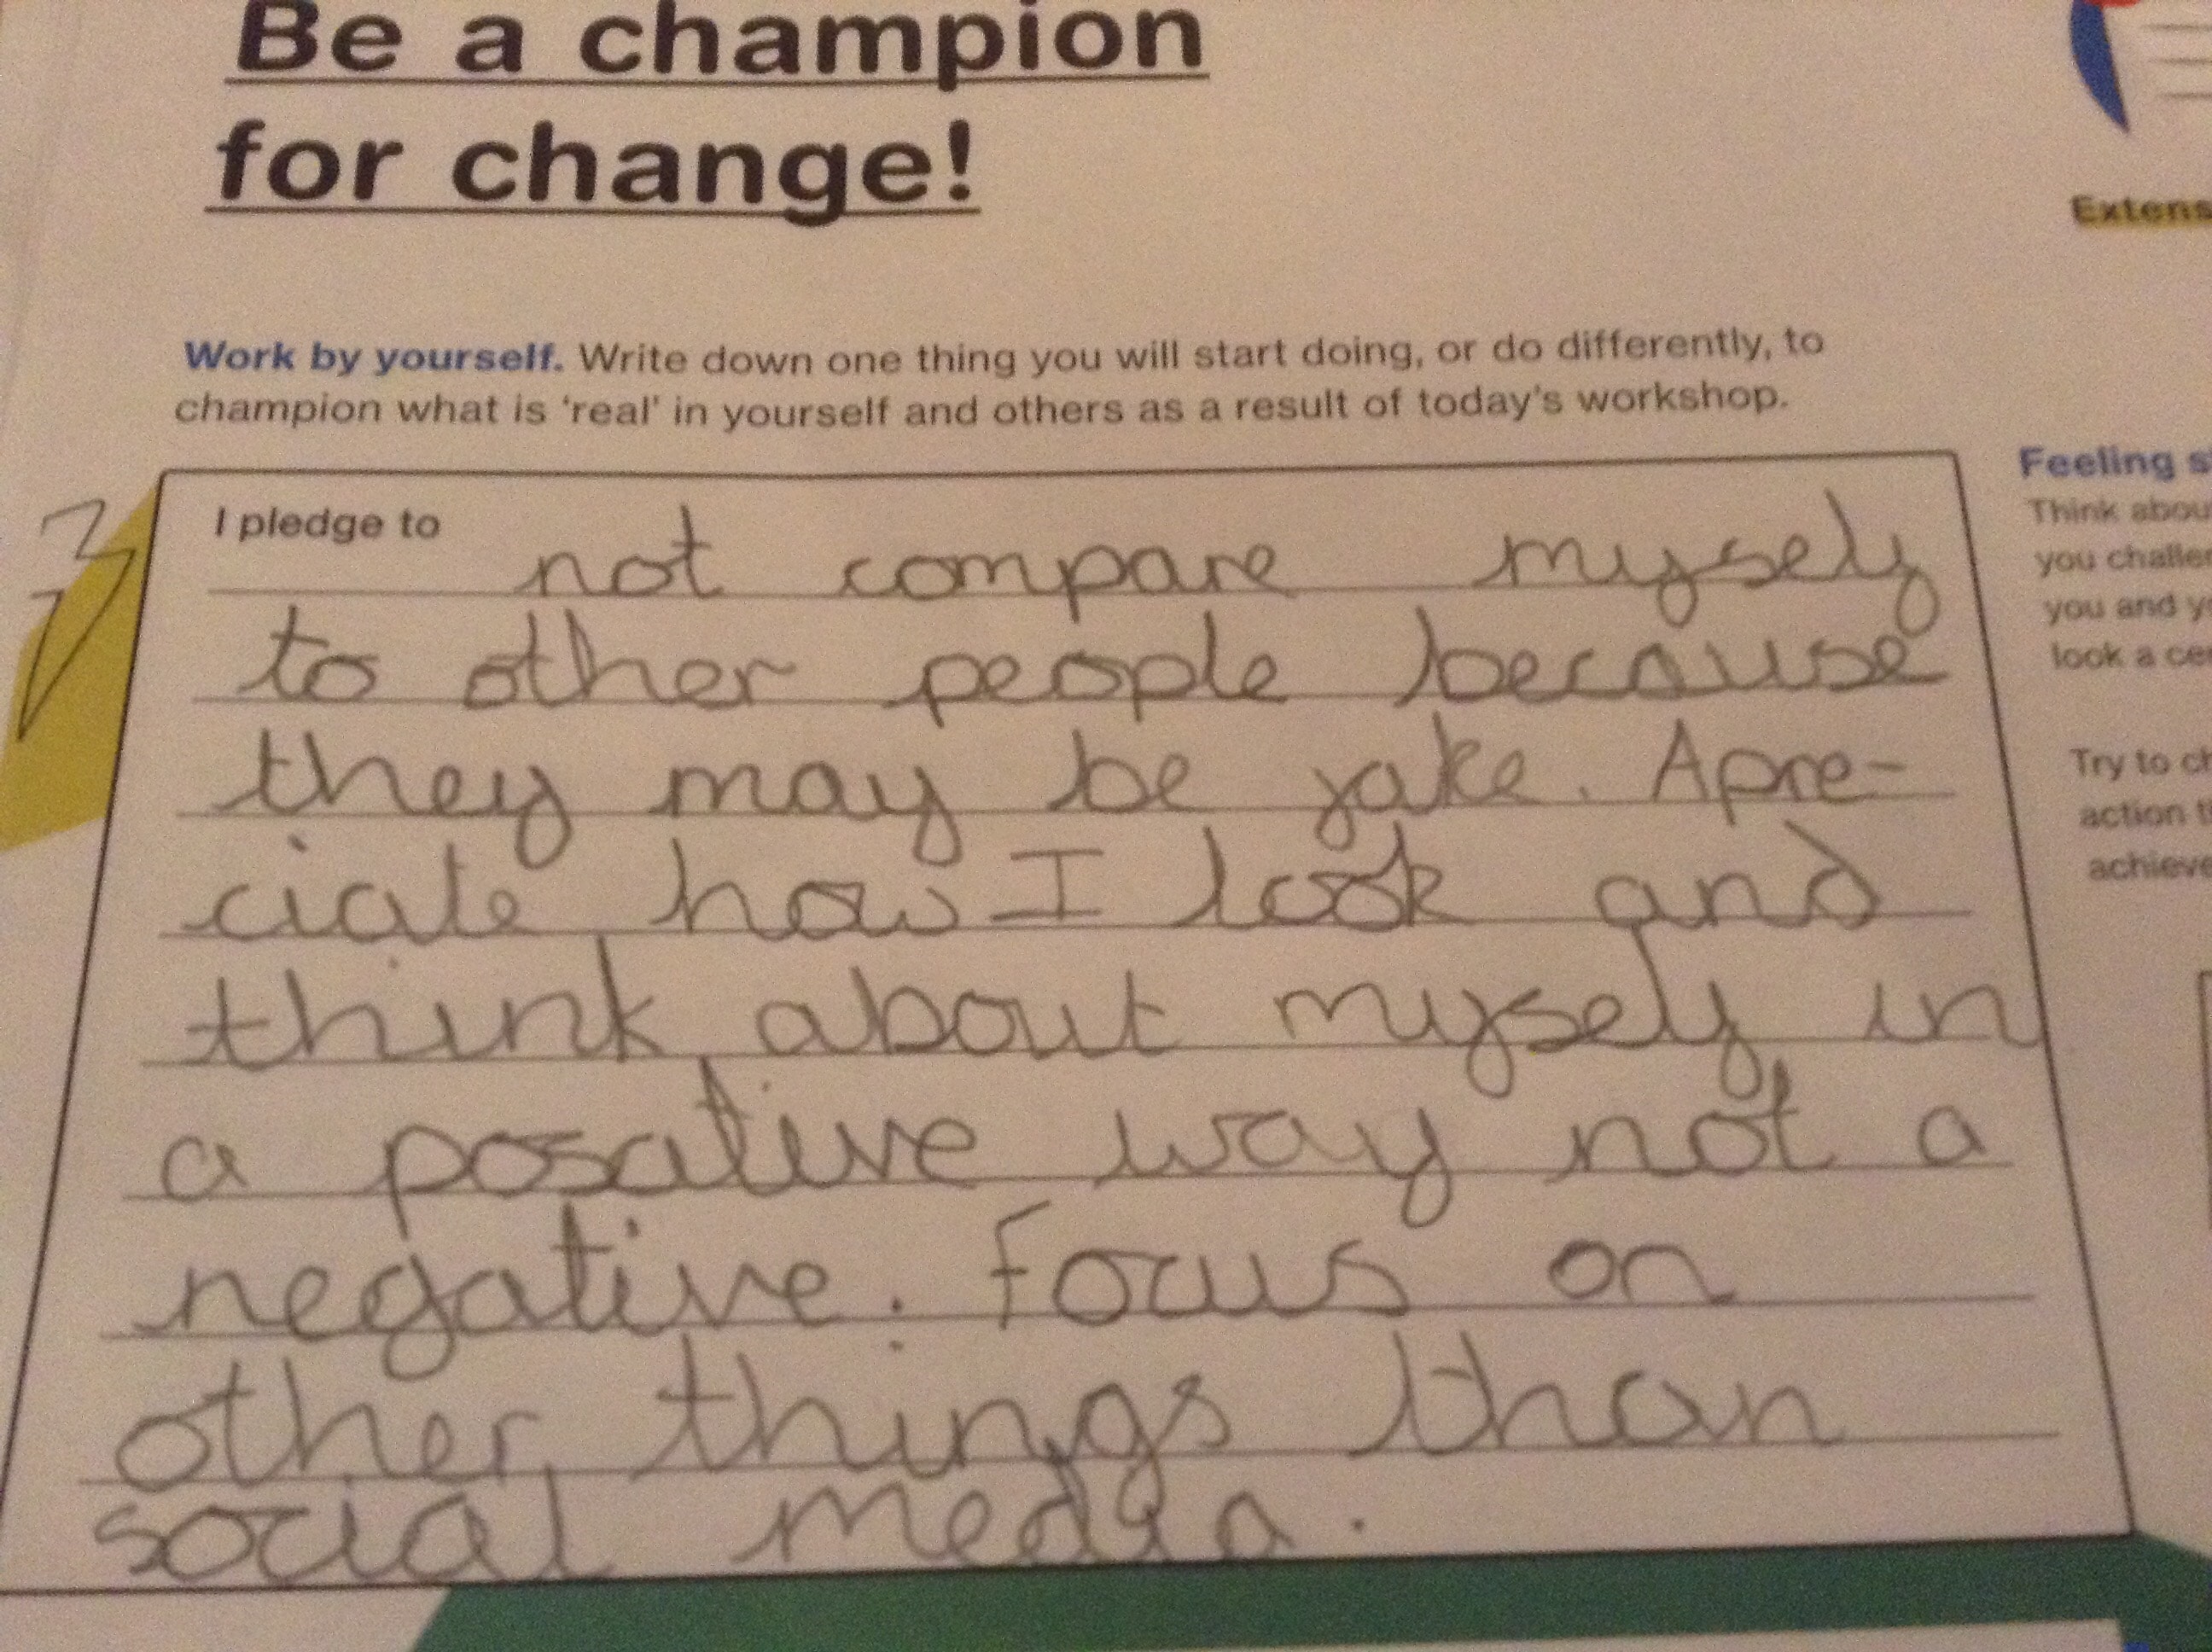 Be a champion
for change!
Extens
Work by yourself. Write down one thing you will start doing, or do differently, to
champion what is 'real' in yourself and others as a result of today's workshop.
I pledge to not compare myself
to other people because
they may be fake. Apre-
ciate how I look and
think about myself in
a posative way not a
negative. Focus on
other things than
social media.
Feeling s
Think abou
you challe
you and y
look a ce
Try to ch
action t
achieve